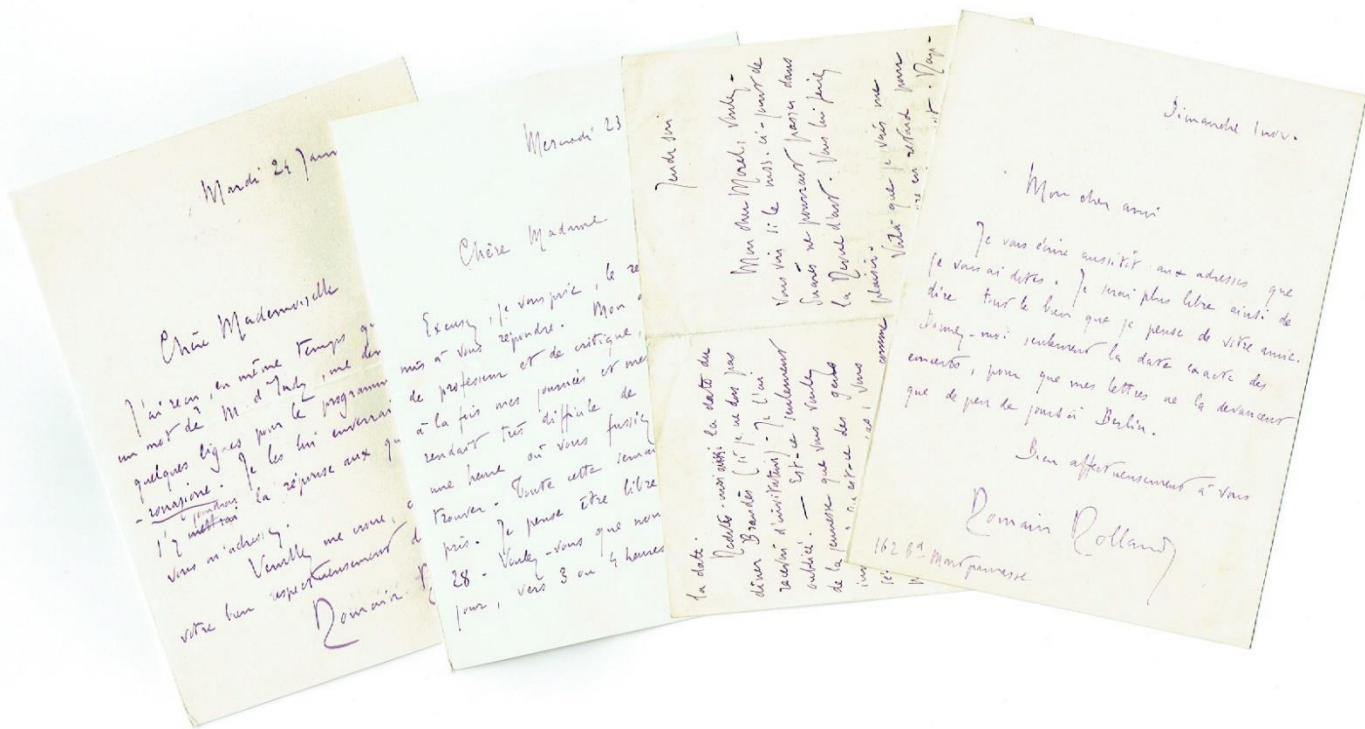 Mardi 24 Jan
Chère Mademoiselle
J'ai reçu, en même temps qu
un mot de M. d'Indy, me dem
quelques lignes pour le programm
Je les lui enverrai
joindrai
J'y mettrai la réponse aux qu
vous m'adressez.
Veuillez me croire,
votre bien respectueusement d
Romain R
Mercredi 23
Chère Madame
Excusez, je vous prie, le re
mis à vous répondre. Mon
de professeur et de critique,
à la fois mes journées et mes
rendait très difficile de
une heure où vous fussiez
trouver. Toute cette semai
pris. Je pense être libre
28. Voulez-vous que nou
jour, vers 3 ou 4 heures
Jeudi soir
Mon cher Morel, voulez-
vous voir si le mss. ci-joint de
Suarès ne pourrait passer dans
la Revue d'art. Vous lui feriez
plaisir.
Voilà que je vais me
en retard pour
la date.
Redites-moi aussi la date du
dîner Brandès (si je ne dois pas
recevoir d'invitation). Je l'ai
oubliée. — Est-ce seulement
de la jeunesse que vous voulez
est-ce des gens
comme
vous
Dimanche 1 nov.
Mon cher ami
Je vais écrire aussitôt aux adresses que
je vous ai dites. Je serai plus libre ainsi de
dire tout le bien que je pense de votre amie.
Donnez-moi seulement la date exacte des
concerts, pour que mes lettres ne la devancent
que de peu de jours à Berlin.
Bien affectueusement à vous
Romain Rolland
162 Bd Montparnasse